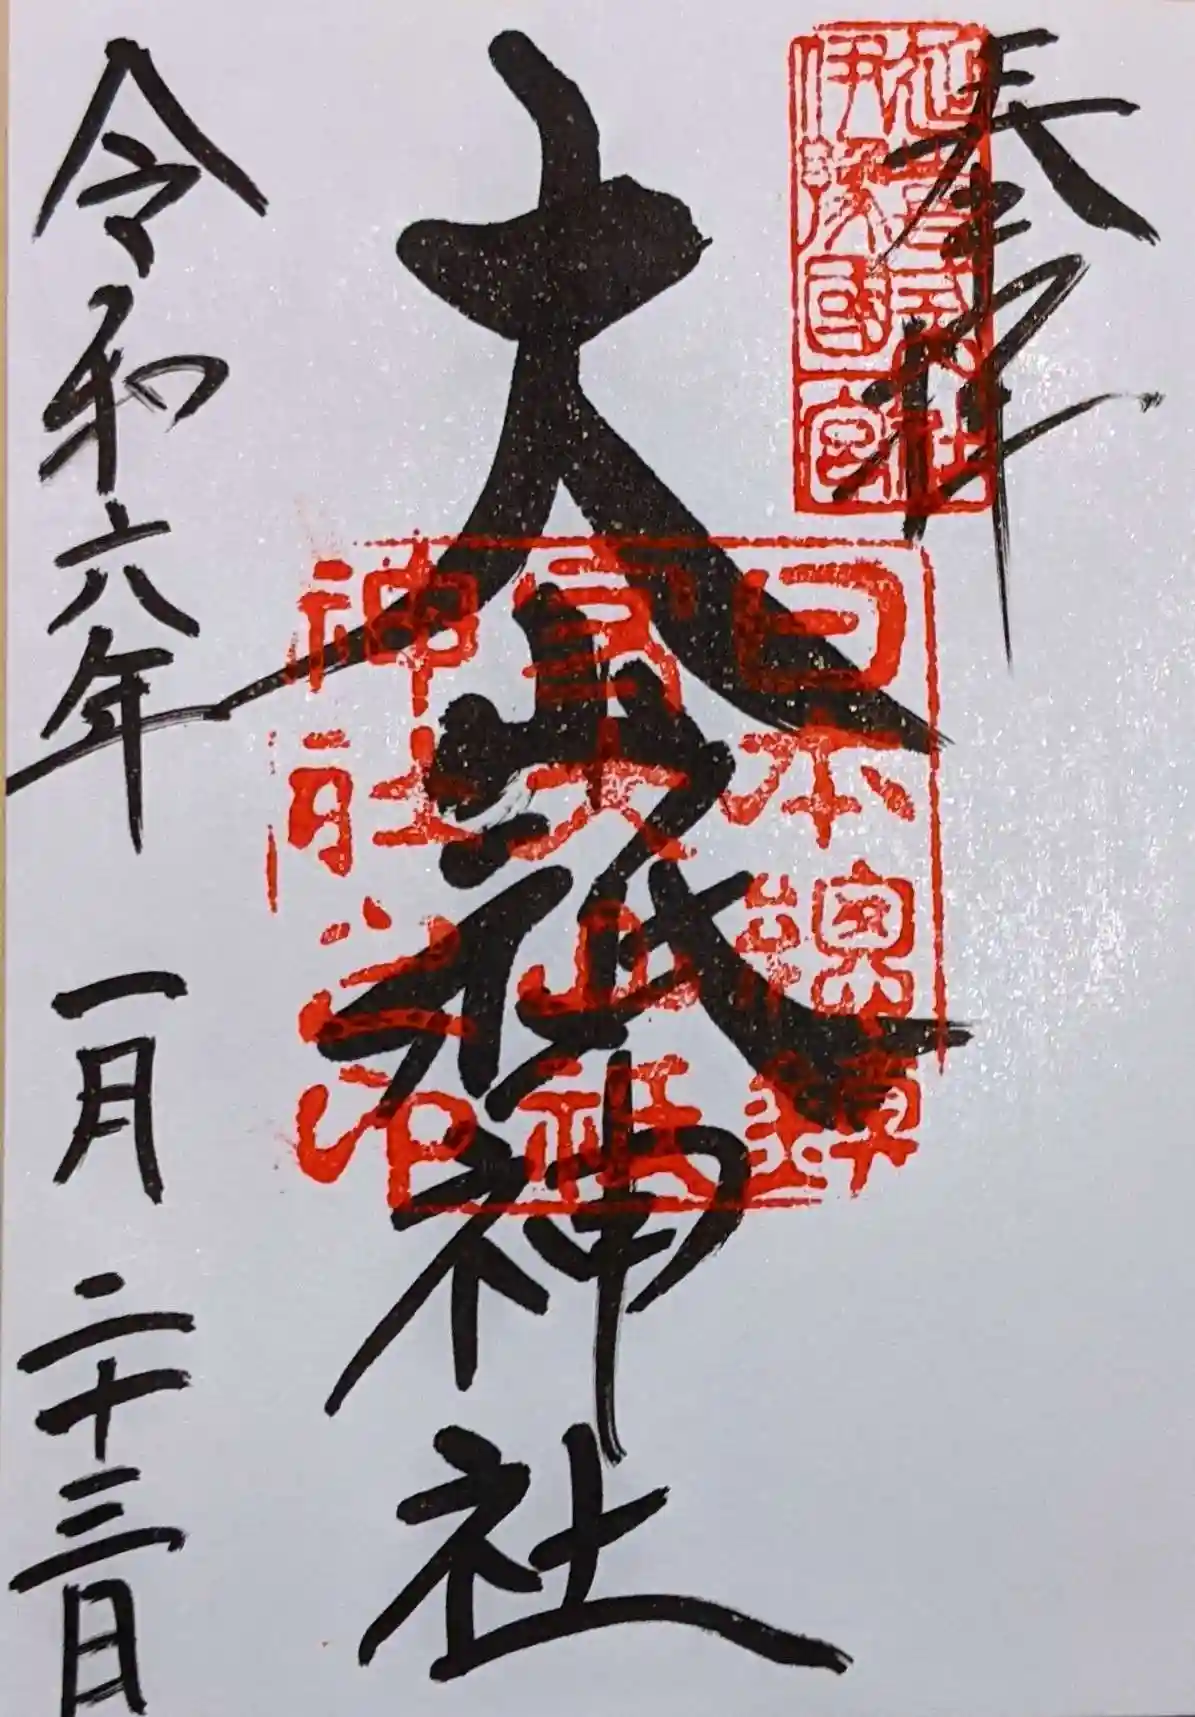 奉拝
延喜式社
伊豫国一宮
大山祇神社
日本總鎮
守大山祇
神社之印
令和六年 一月 二十三日